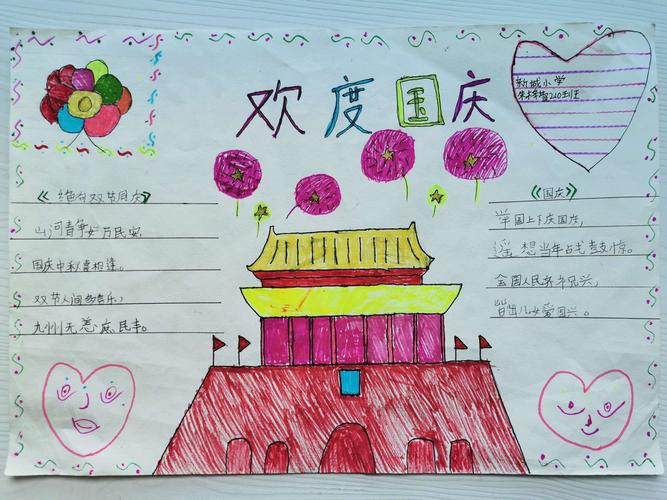 欢度国庆
新城小学
210班
《绝句双节同庆》
山河春争女万民安，
国庆中秋喜相逢。
双节人间多喜乐，
九州无恙庶民丰。
《国庆》
举国上下庆国庆，
遥想当年战鼓惊。
全国人民齐
皆由儿女爱国兴。